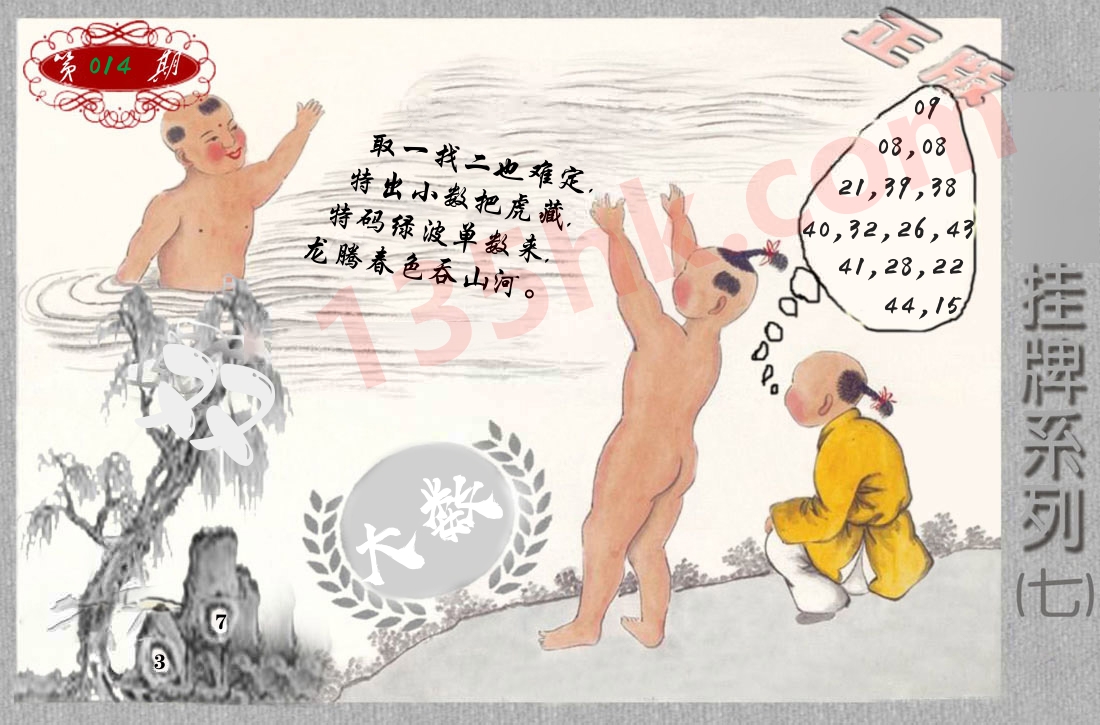 第014期
正版
09
08,08
21,39,38
40,32,26,43
41,28,22
44,15
取一找二也难定,
特出小数把虎藏,
特码绿波单数来,
龙腾春色吞山河。
135hk.com
双
大数
7
3
挂牌系列(七)